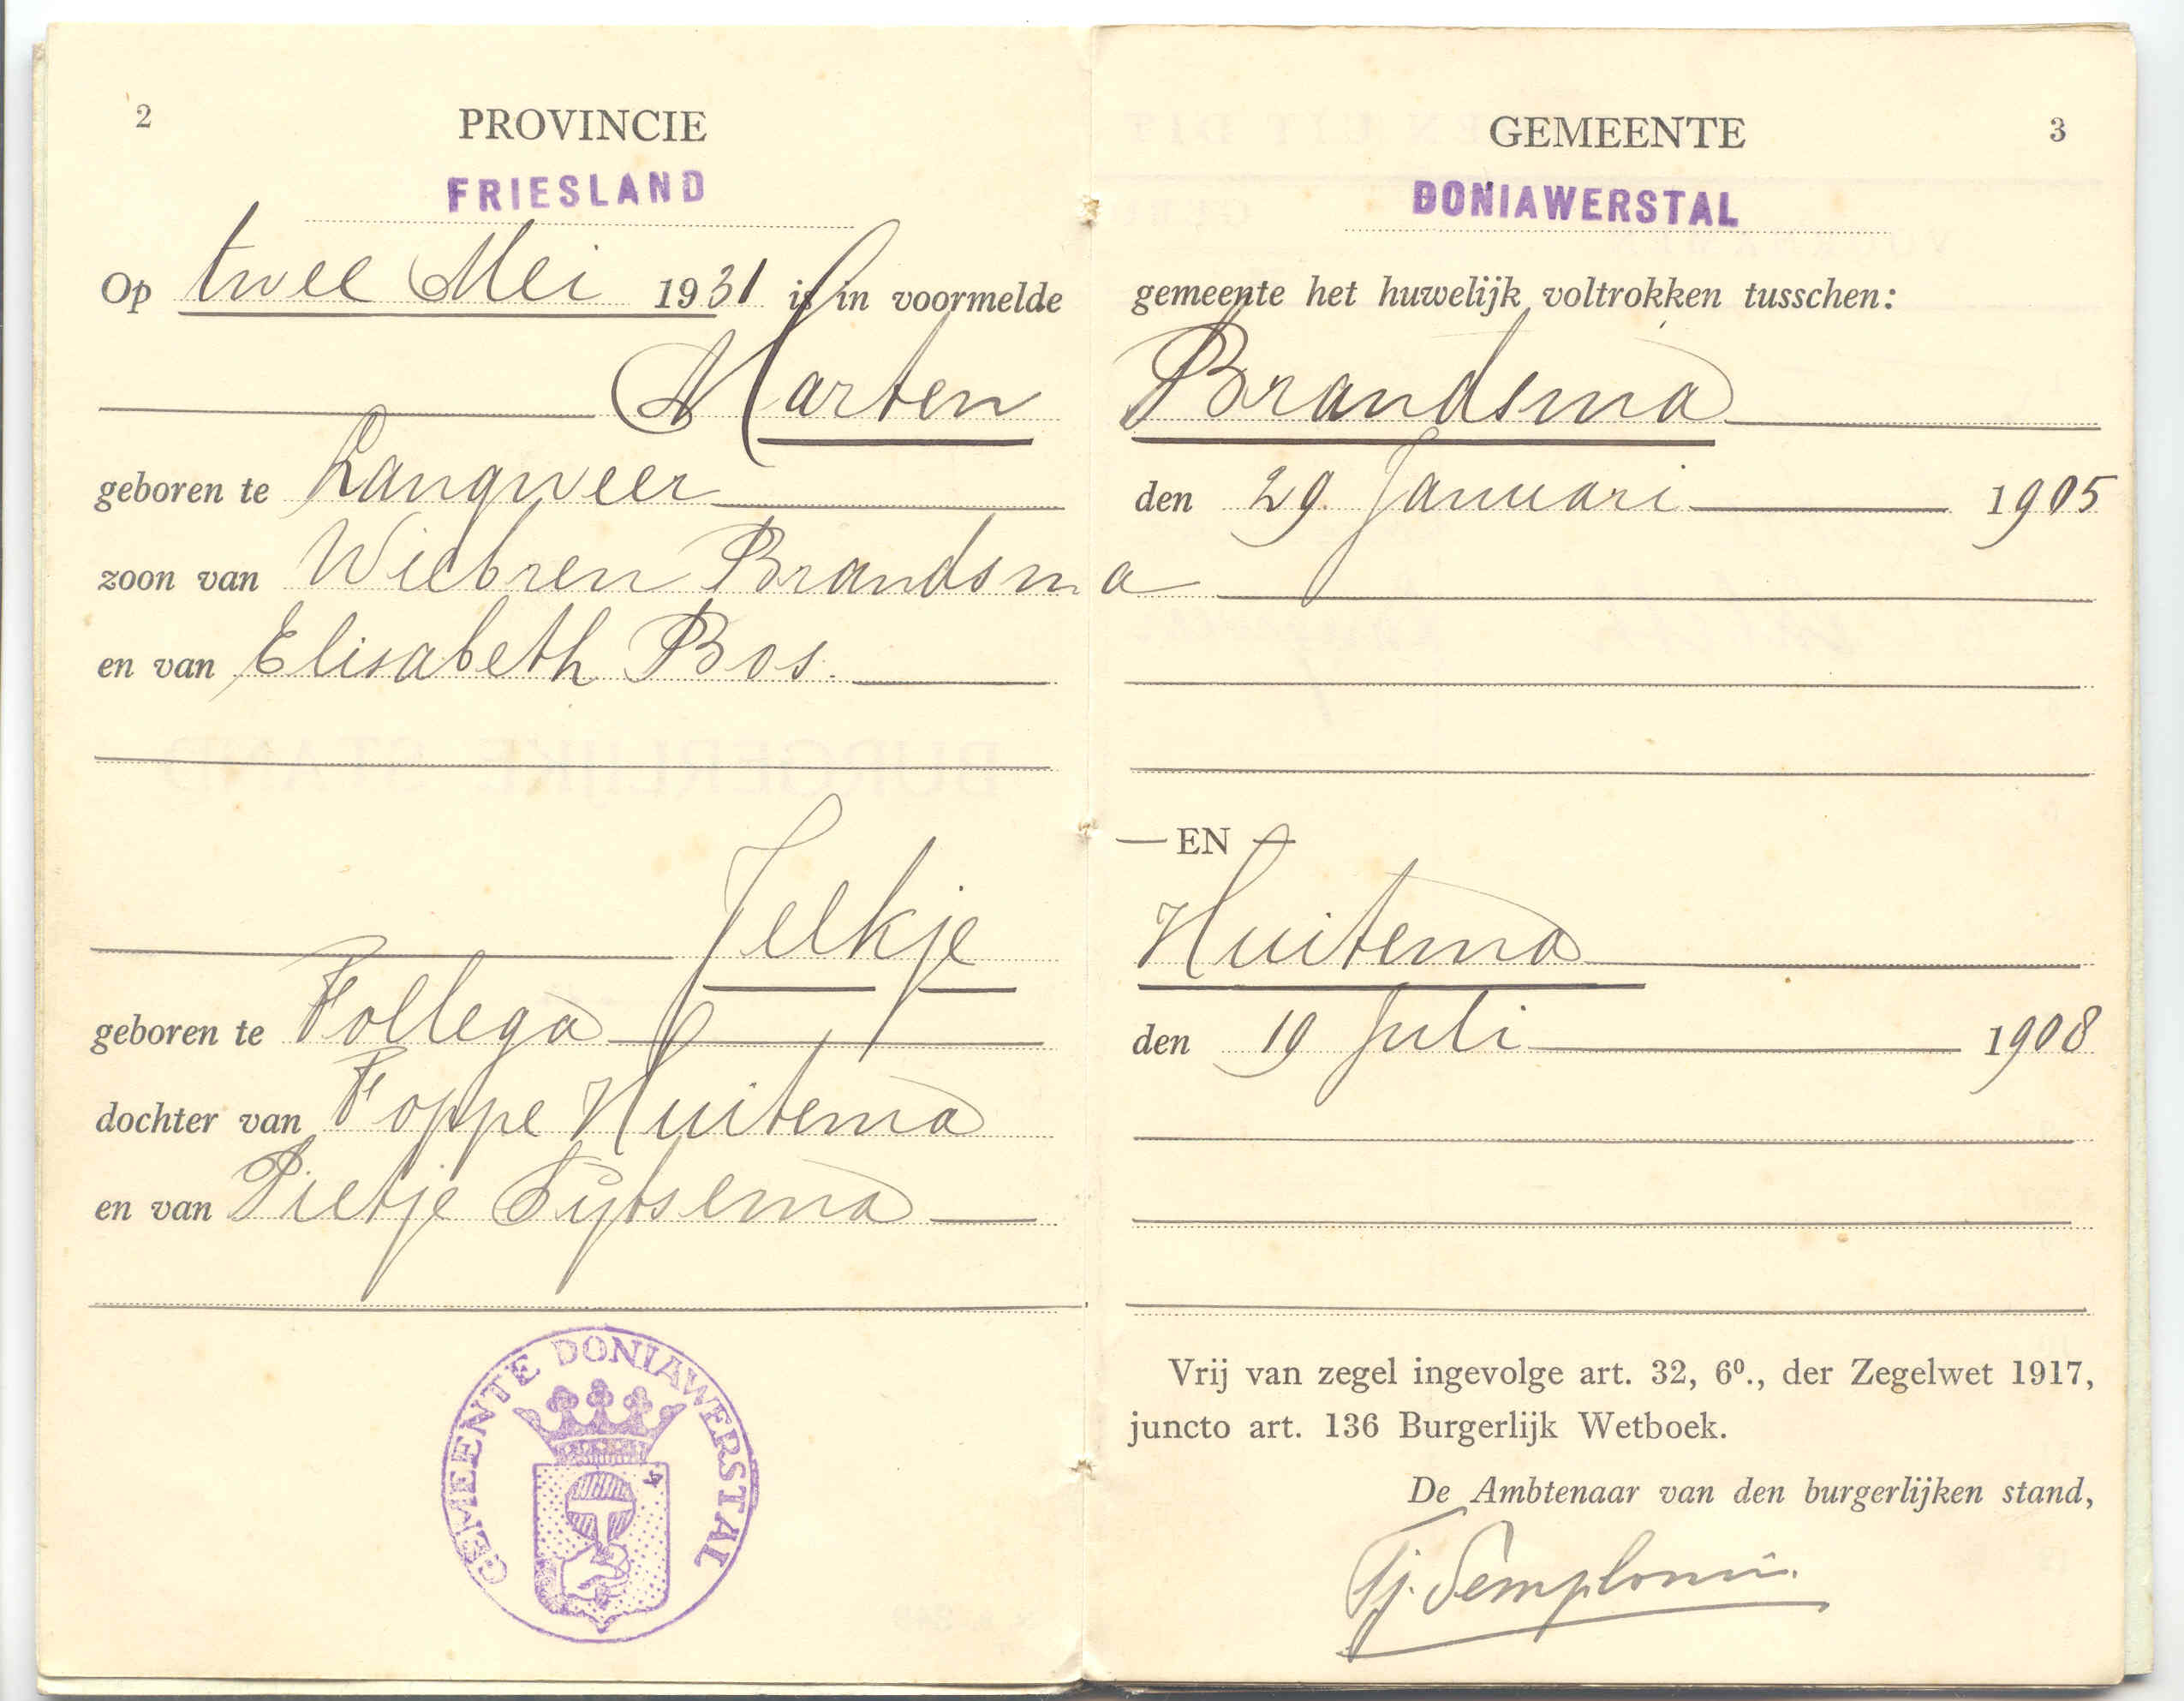 2
PROVINCIE
FRIESLAND
Op twee Mei 1931 is in voormelde
Marten
geboren te Langweer
zoon van Wiebren Brandsma
en van Elisabeth Bos.
Jelkje
geboren te Follega
dochter van Foppe Huitema
en van Pietje Sytsema
GEMEENTE DONIAWERSTAL
GEMEENTE
3
DONIAWERSTAL
gemeente het huwelijk voltrokken tusschen:
Brandsma
den 29 Januari 1905
— EN —
Huitema
den 19 Juli 1908
Vrij van zegel ingevolge art. 32, 6⁰., der Zegelwet 1917,
juncto art. 136 Burgerlijk Wetboek.
De Ambtenaar van den burgerlijken stand,
Tj.